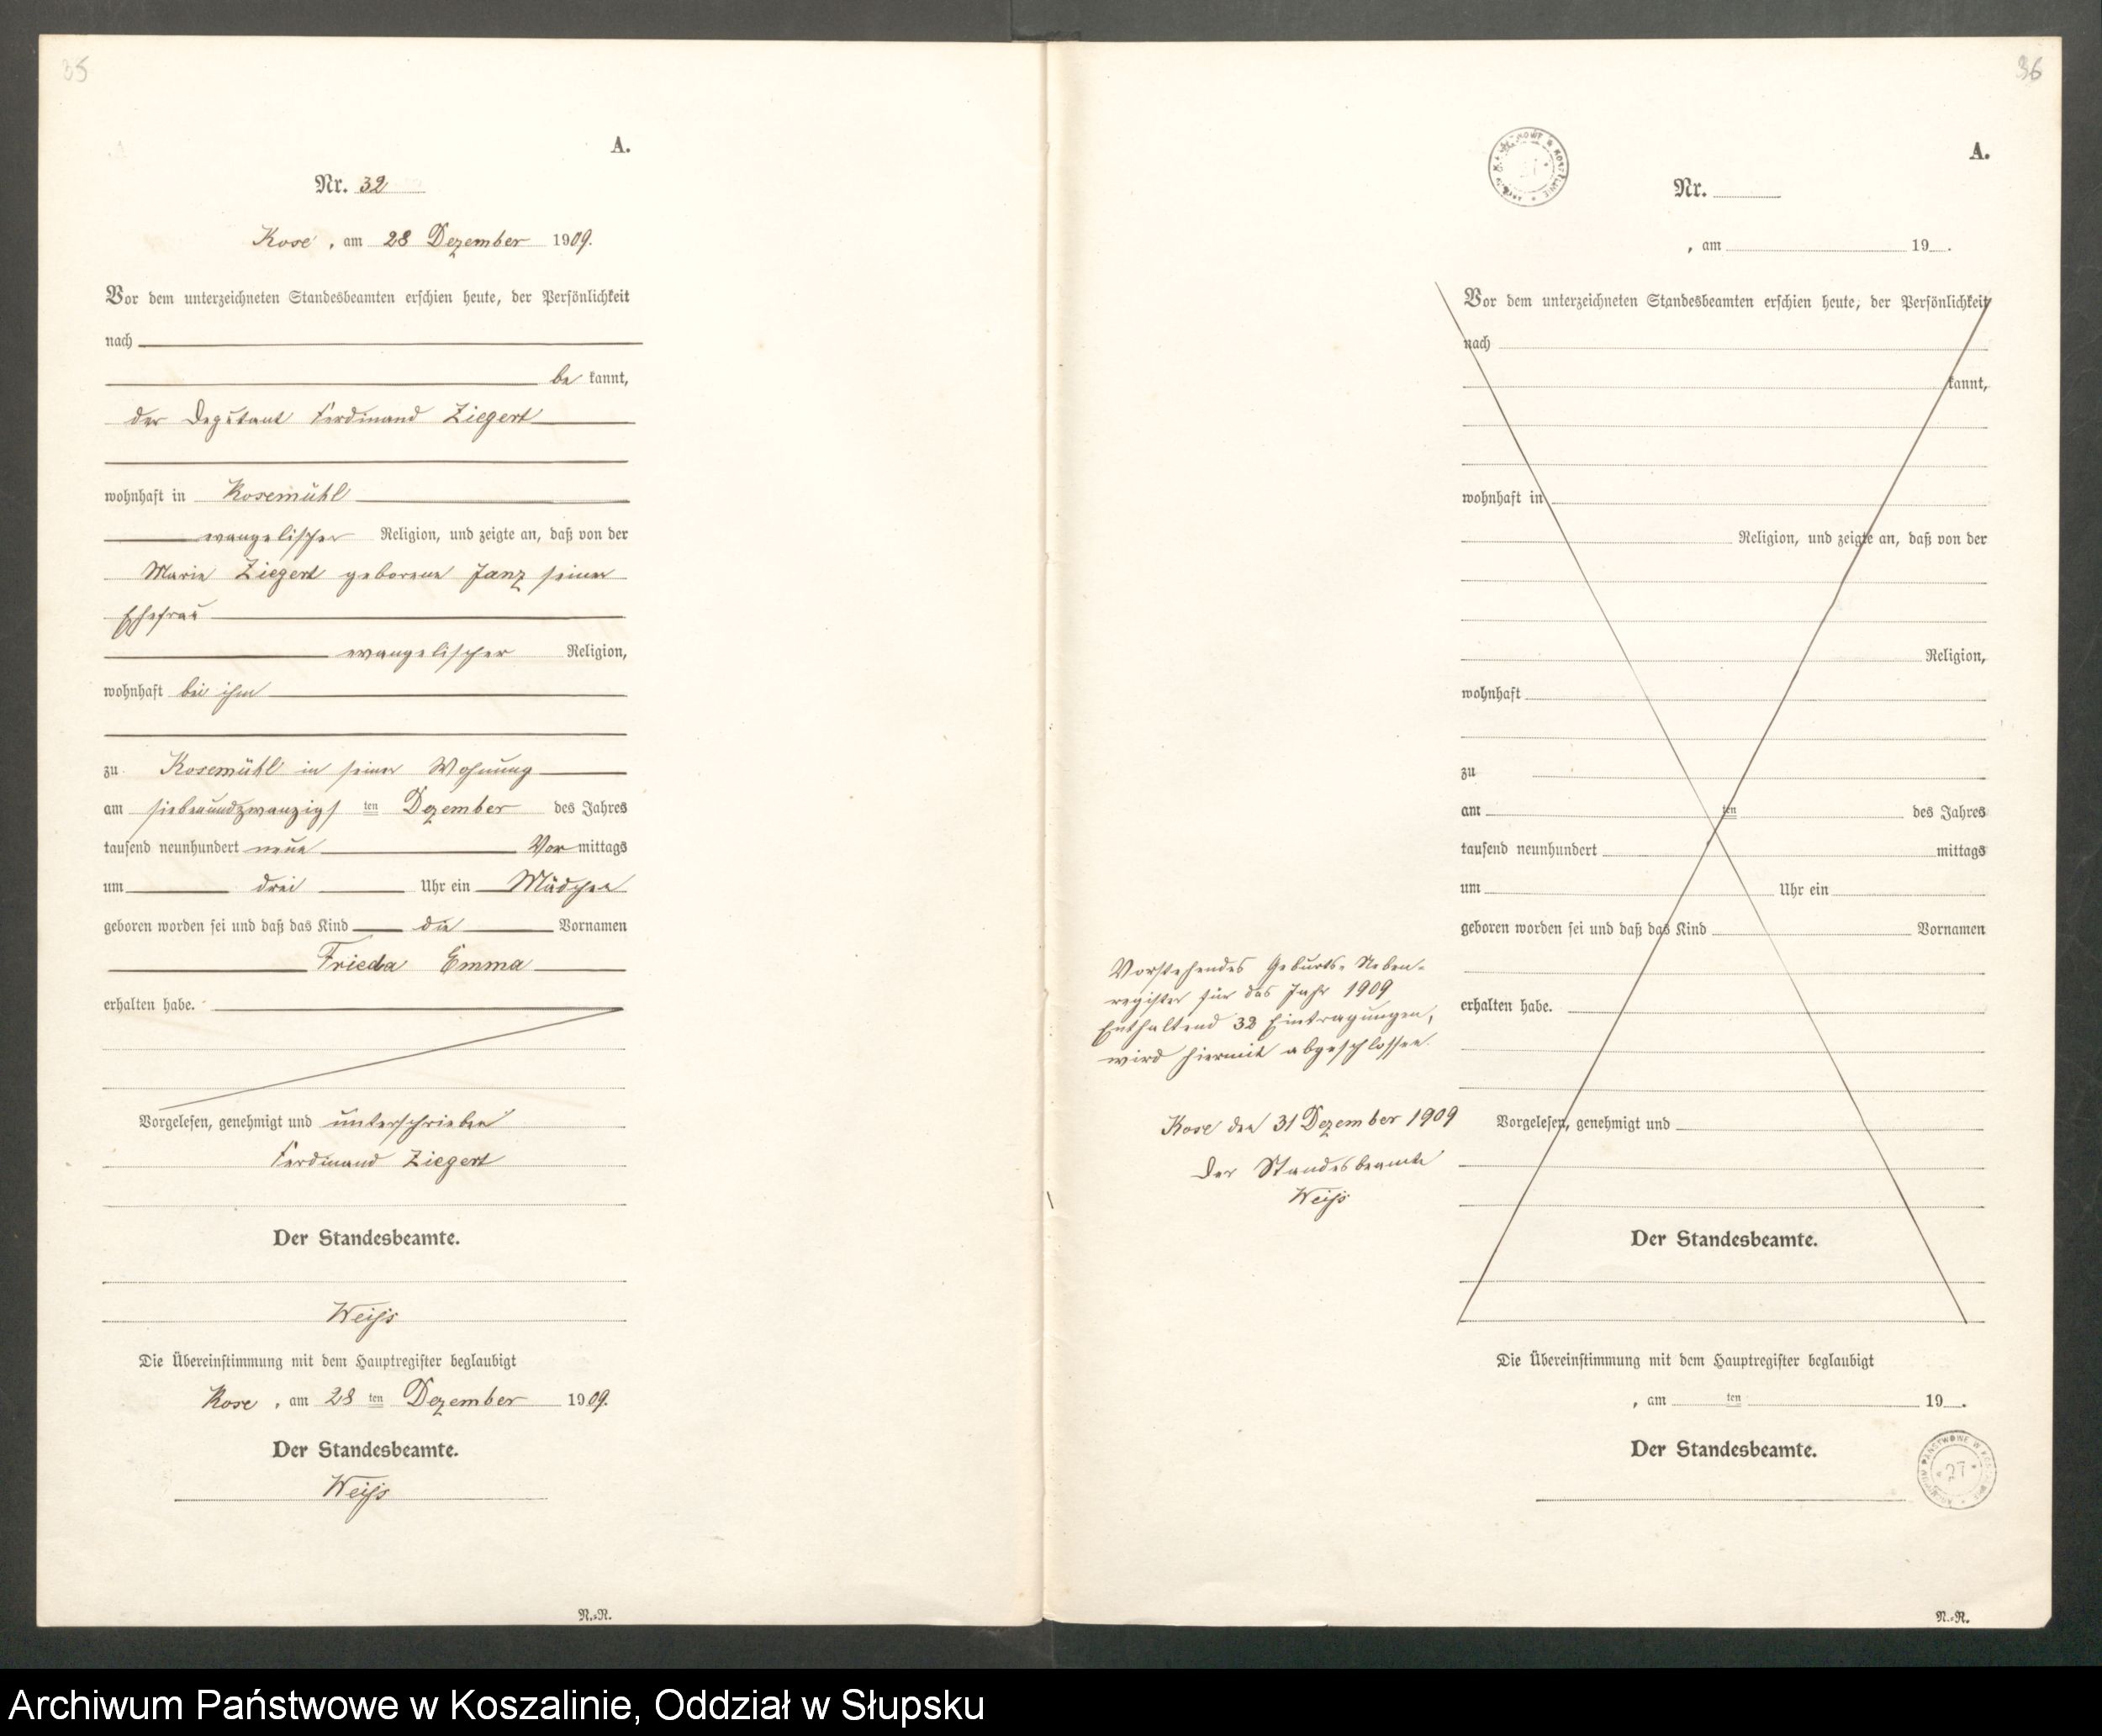 35
A.
Nr. 32
Kose, am 28 Dezember 1909.
Vor dem unterzeichneten Standesbeamten erschien heute, der Persönlichkeit
nach
be kannt,
der Deputant Ferdinand Ziegert
wohnhaft in Kosemühl
evangelischer Religion, und zeigte an, daß von der
Marie Ziegert geborene Janz seiner
Ehefrau
evangelischer Religion,
wohnhaft bei ihm
zu Kosemühl in seiner Wohnung
am siebenundzwanzigsten Dezember des Jahres
tausend neunhundert neun Vormittags
um drei Uhr ein Mädchen
geboren worden sei und daß das Kind die Vornamen
Frieda Emma
erhalten habe.
Vorgelesen, genehmigt und unterschrieben
Ferdinand Ziegert
Der Standesbeamte.
Weiß
Die Übereinstimmung mit dem Hauptregister beglaubigt
Kose, am 28 ten Dezember 1909.
Der Standesbeamte.
Weiß
N.-R.
36
A.
Nr.
, am 19 .
Vor dem unterzeichneten Standesbeamten erschien heute, der Persönlichkeit
nach
kannt,
wohnhaft in
Religion, und zeigte an, daß von der
Religion,
wohnhaft
zu
am ten des Jahres
tausend neunhundert mittags
um Uhr ein
geboren worden sei und daß das Kind Vornamen
erhalten habe.
Vorgelesen, genehmigt und
Der Standesbeamte.
Die Übereinstimmung mit dem Hauptregister beglaubigt
, am ten 19 .
Der Standesbeamte.
27
N.-R.
Vorstehendes Geburts-Neben-
register für das Jahr 1909
Enthaltend 32 Eintragungen,
wird hiermit abgeschlossen.
Kose den 31 Dezember 1909
Der Standesbeamte
Weiß
Archiwum Państwowe w Koszalinie, Oddział w Słupsku